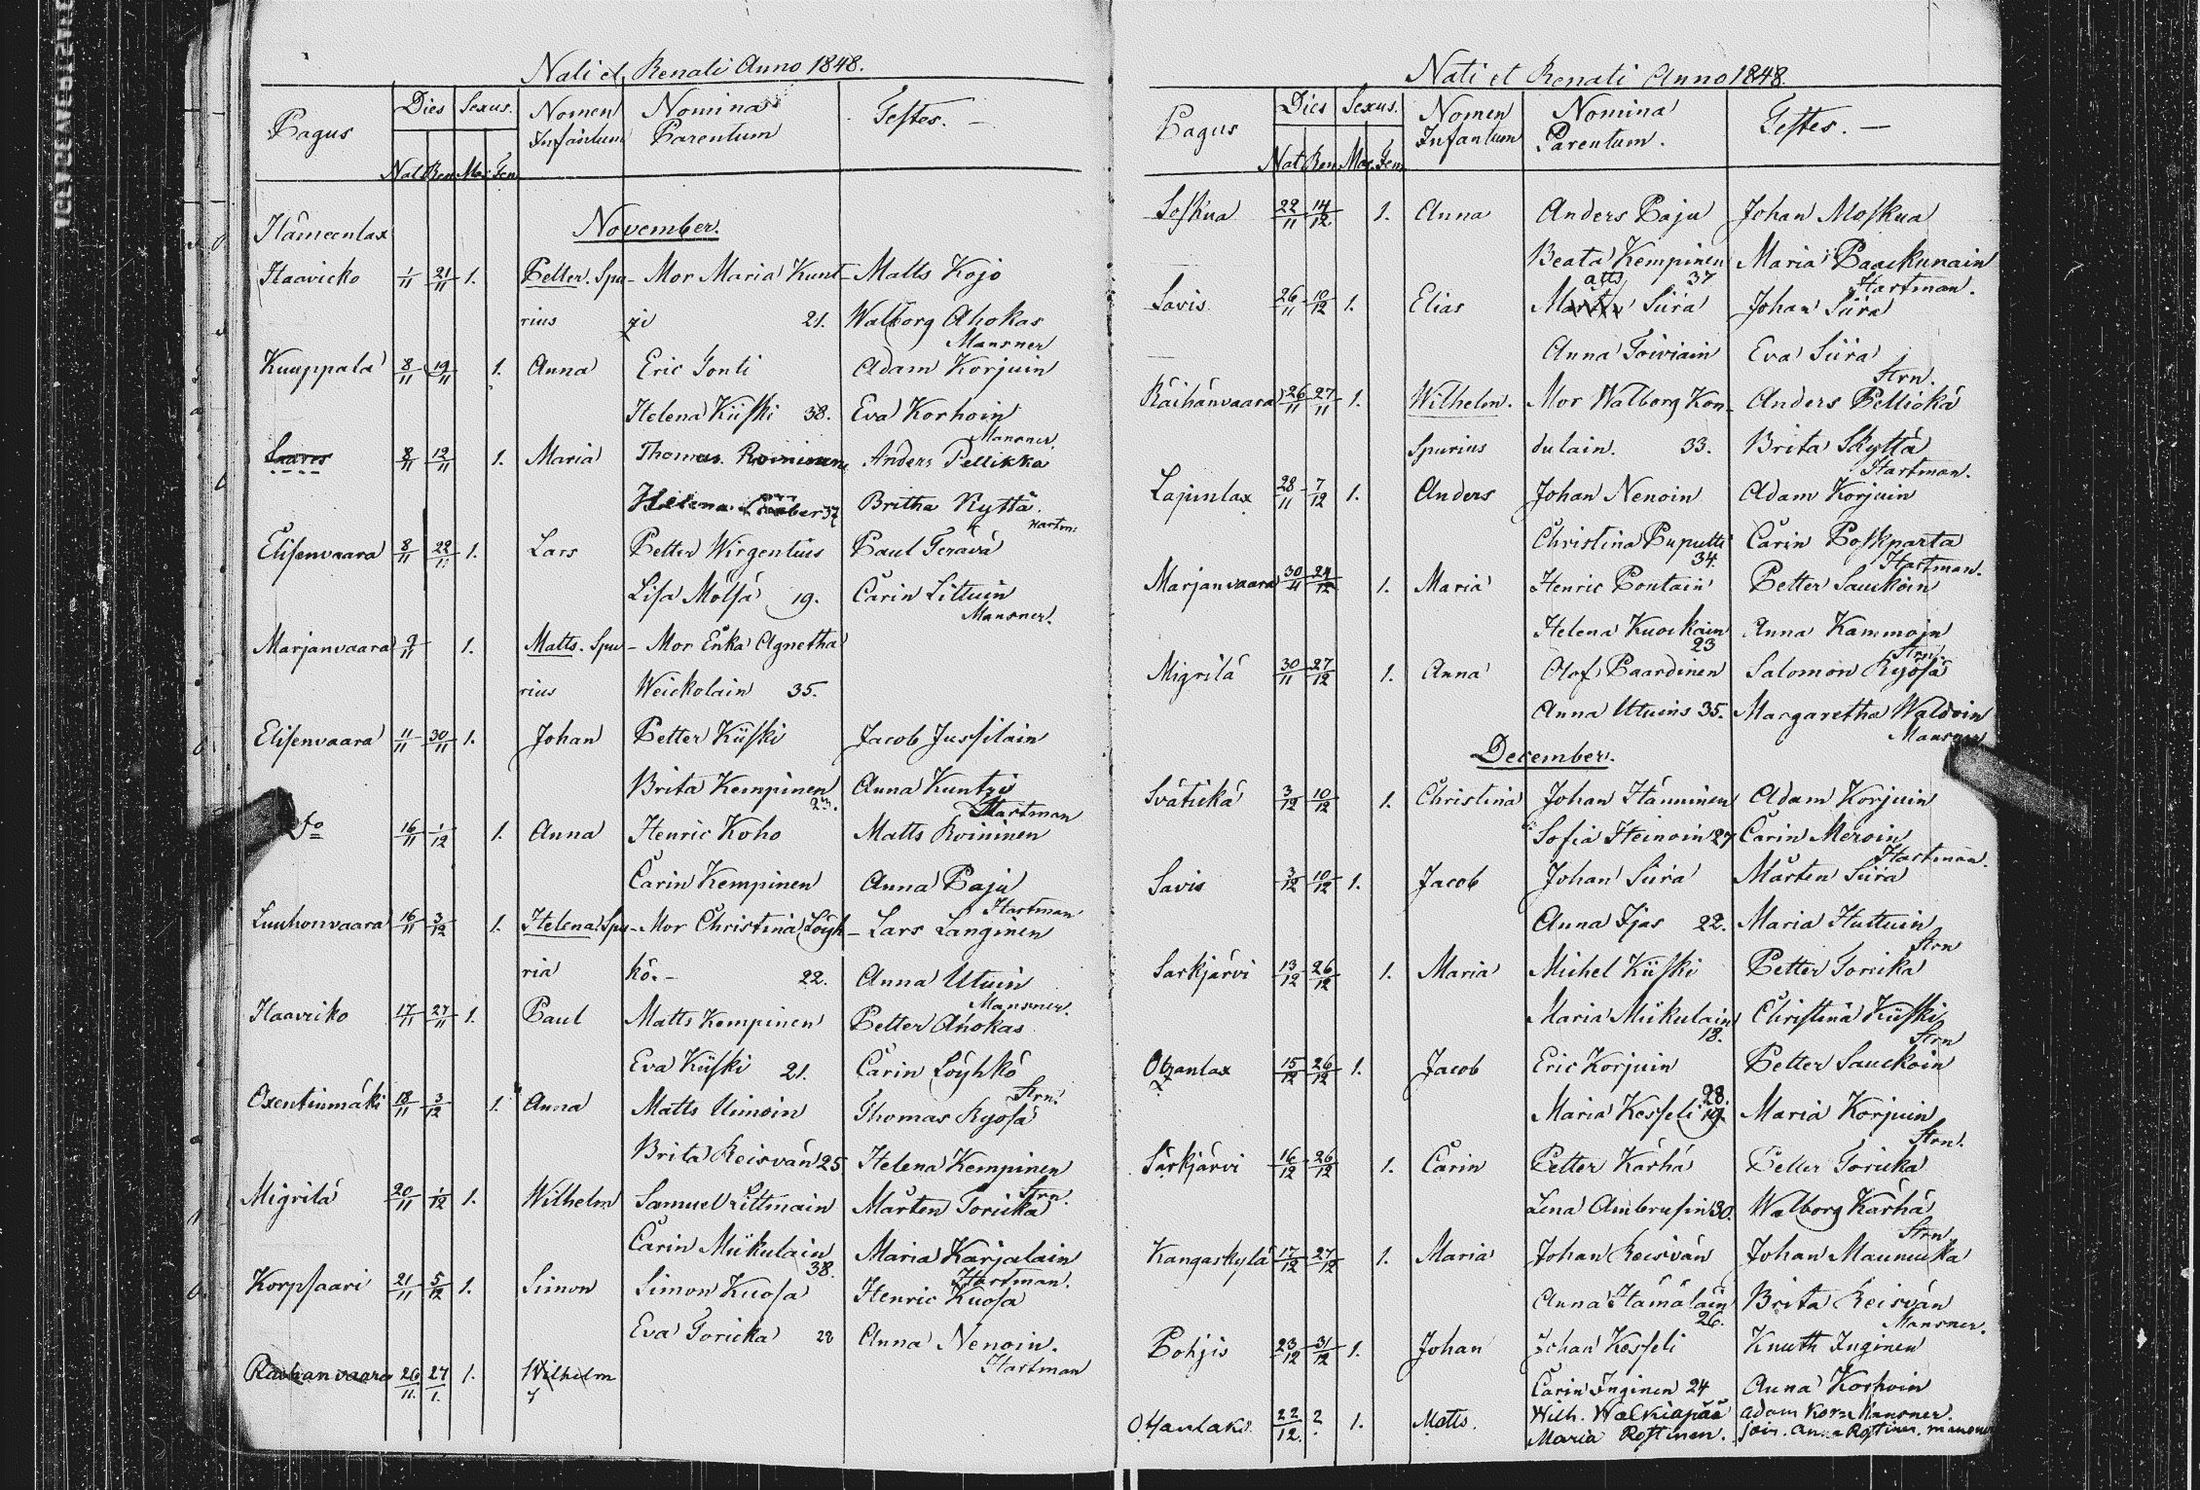 Nati et Renati Anno 1848.
Pagus Dies Sexus. Nomen Infantum Nomina Parentum Testes. —
Nat. Ren. Mas. Fem.
Hämeenlax November.
Haavicko 1/11 21/11 1. Petter. Spu- Mor Maria Kunt- Matts Kojo
rius zi 21. Walborg Ahokas
Mansner
Kuuppala 8/11 19/11 1. Anna Eric Jonti Adam Korjuin
Helena Kiiski 38. Eva Korhoin
Mansner
8/11 19/11 1. Maria Thomas Roininen Anders Pellikka
Helena 37 Britha Kyttä.
Hartm:
Elisenvaara 8/11 22/11 1. Lars Petter Wirgentius Paul Terävä
Lisa Mölsä 19. Carin Lituin
Mansner.
Marjanvaara 9/11 1. Matts. Spu- Mor Erika Agnetha
rius Weickolain 35.
Elisenvaara 11/11 30/11 1. Johan Petter Kiiski Jacob Jussilain
Brita Kempinen 23. Anna Kuntzi
Hartman
Do 16/11 1/12 1. Anna Henric Koho Matts Roininen
Carin Kempinen Anna Paju
Hartman
Luuhonvaara 16/11 3/12 1. Helena Spu- Mor Christina Löyh- Lars Langinen
ria kö. - 22. Anna Utuin
Mansner.
Haaviko 17/11 27/11 1. Paul Matts Kempinen Petter Ahokas
Eva Kiiski 21. Carin Löyhkö
Strn.
Oxentinmäki 18/11 3/12 1. Anna Matts Uimoin Thomas Ryösä
Brita Reisvän 25 Helena Kempinen
Strn.
Migrilä 20/11 1/12 1. Wilhelm Samuel Littmain Mårten Toricka
Carin Miikulain 38. Maria Karjalain
Hartman.
Korpsaari 21/11 5/12 1. Simon Simon Kuosa Henric Kuosa
Eva Toricka 22 Anna Nenoin.
Hartman
26/11. 27/1. 1. Wilhelm
Nati et Renati Anno 1848.
Pagus Dies Sexus. Nomen Infantum Nomina Parentum. Testes. —
Nat. Ren. Mas. Fem
Soskua 22/11 14/12 1. Anna Anders Paju Johan Moskua
Beata Kempinen 37 Maria Paackunain
Hartman.
Savis 26/11 10/12 1. Elias Matts Siira Johan Siira
Anna Toiviain Eva Siira
Strn.
Räihänvaara 26/11 27/11 1. Wilhelm. Mor Walborg Kon- Anders Pellickä
Spurius dulain. 33. Brita Skyttä
Hartman.
Lajunlax 28/11 7/12 1. Anders Johan Nenoin Adam Korjuin
Christina Puputti 34. Carin Poskparta
Hartman.
Marjanvaara 30/11 24/12 1. Maria Henric Pontain Petter Sauckoin
Helena Kuockain 23 Anna Kammoin
Strn.
Migrilä 30/11 27/12 1. Anna Olof Paardinen Salomon Ryösä
Anna Utuins 35. Margaretha Waldoin
Mansner
December.
Svätickä 3/12 10/12 1. Christina Johan Hänninen Adam Korjuin
Sofia Heinoin 27 Carin Meroin
Hartman.
Savis 3/12 10/12 1. Jacob Johan Siira Mårten Siira
Anna Ijas 22. Maria Huttuin
Strn
Särkjärvi 13/12 26/12 1. Maria Michel Kiiski Petter Toricka
Maria Miikulain 18. Christina Kiiski
Strn
Otzanlax 15/12 26/12 1. Jacob Eric Korjuin Petter Sauckoin
28.
Maria Kesseli 19. Maria Korjuin
Strn.
Särkjärvi 16/12 26/12 1. Carin Petter Kärhä Petter Toricka
Lena Ambrusin 30. Walborg Kärhä
Strn.
Kangaskylä 17/12 27/12 1. Maria Johan Reisvän Johan Maunucka
Anna Hämäläin 26. Brita Reisvän
Mansner.
Pohjis 23/12 31/12 1. Johan Johan Kesseli Knuth Inginen
Carin Inginen 24 Anna Korhoin
Otzanlaks 22/12. ? 1. Matts. Wilh. Walkiapää Adam Kor- Mansner.
Maria Rostinen. join. Anna Rostinen.